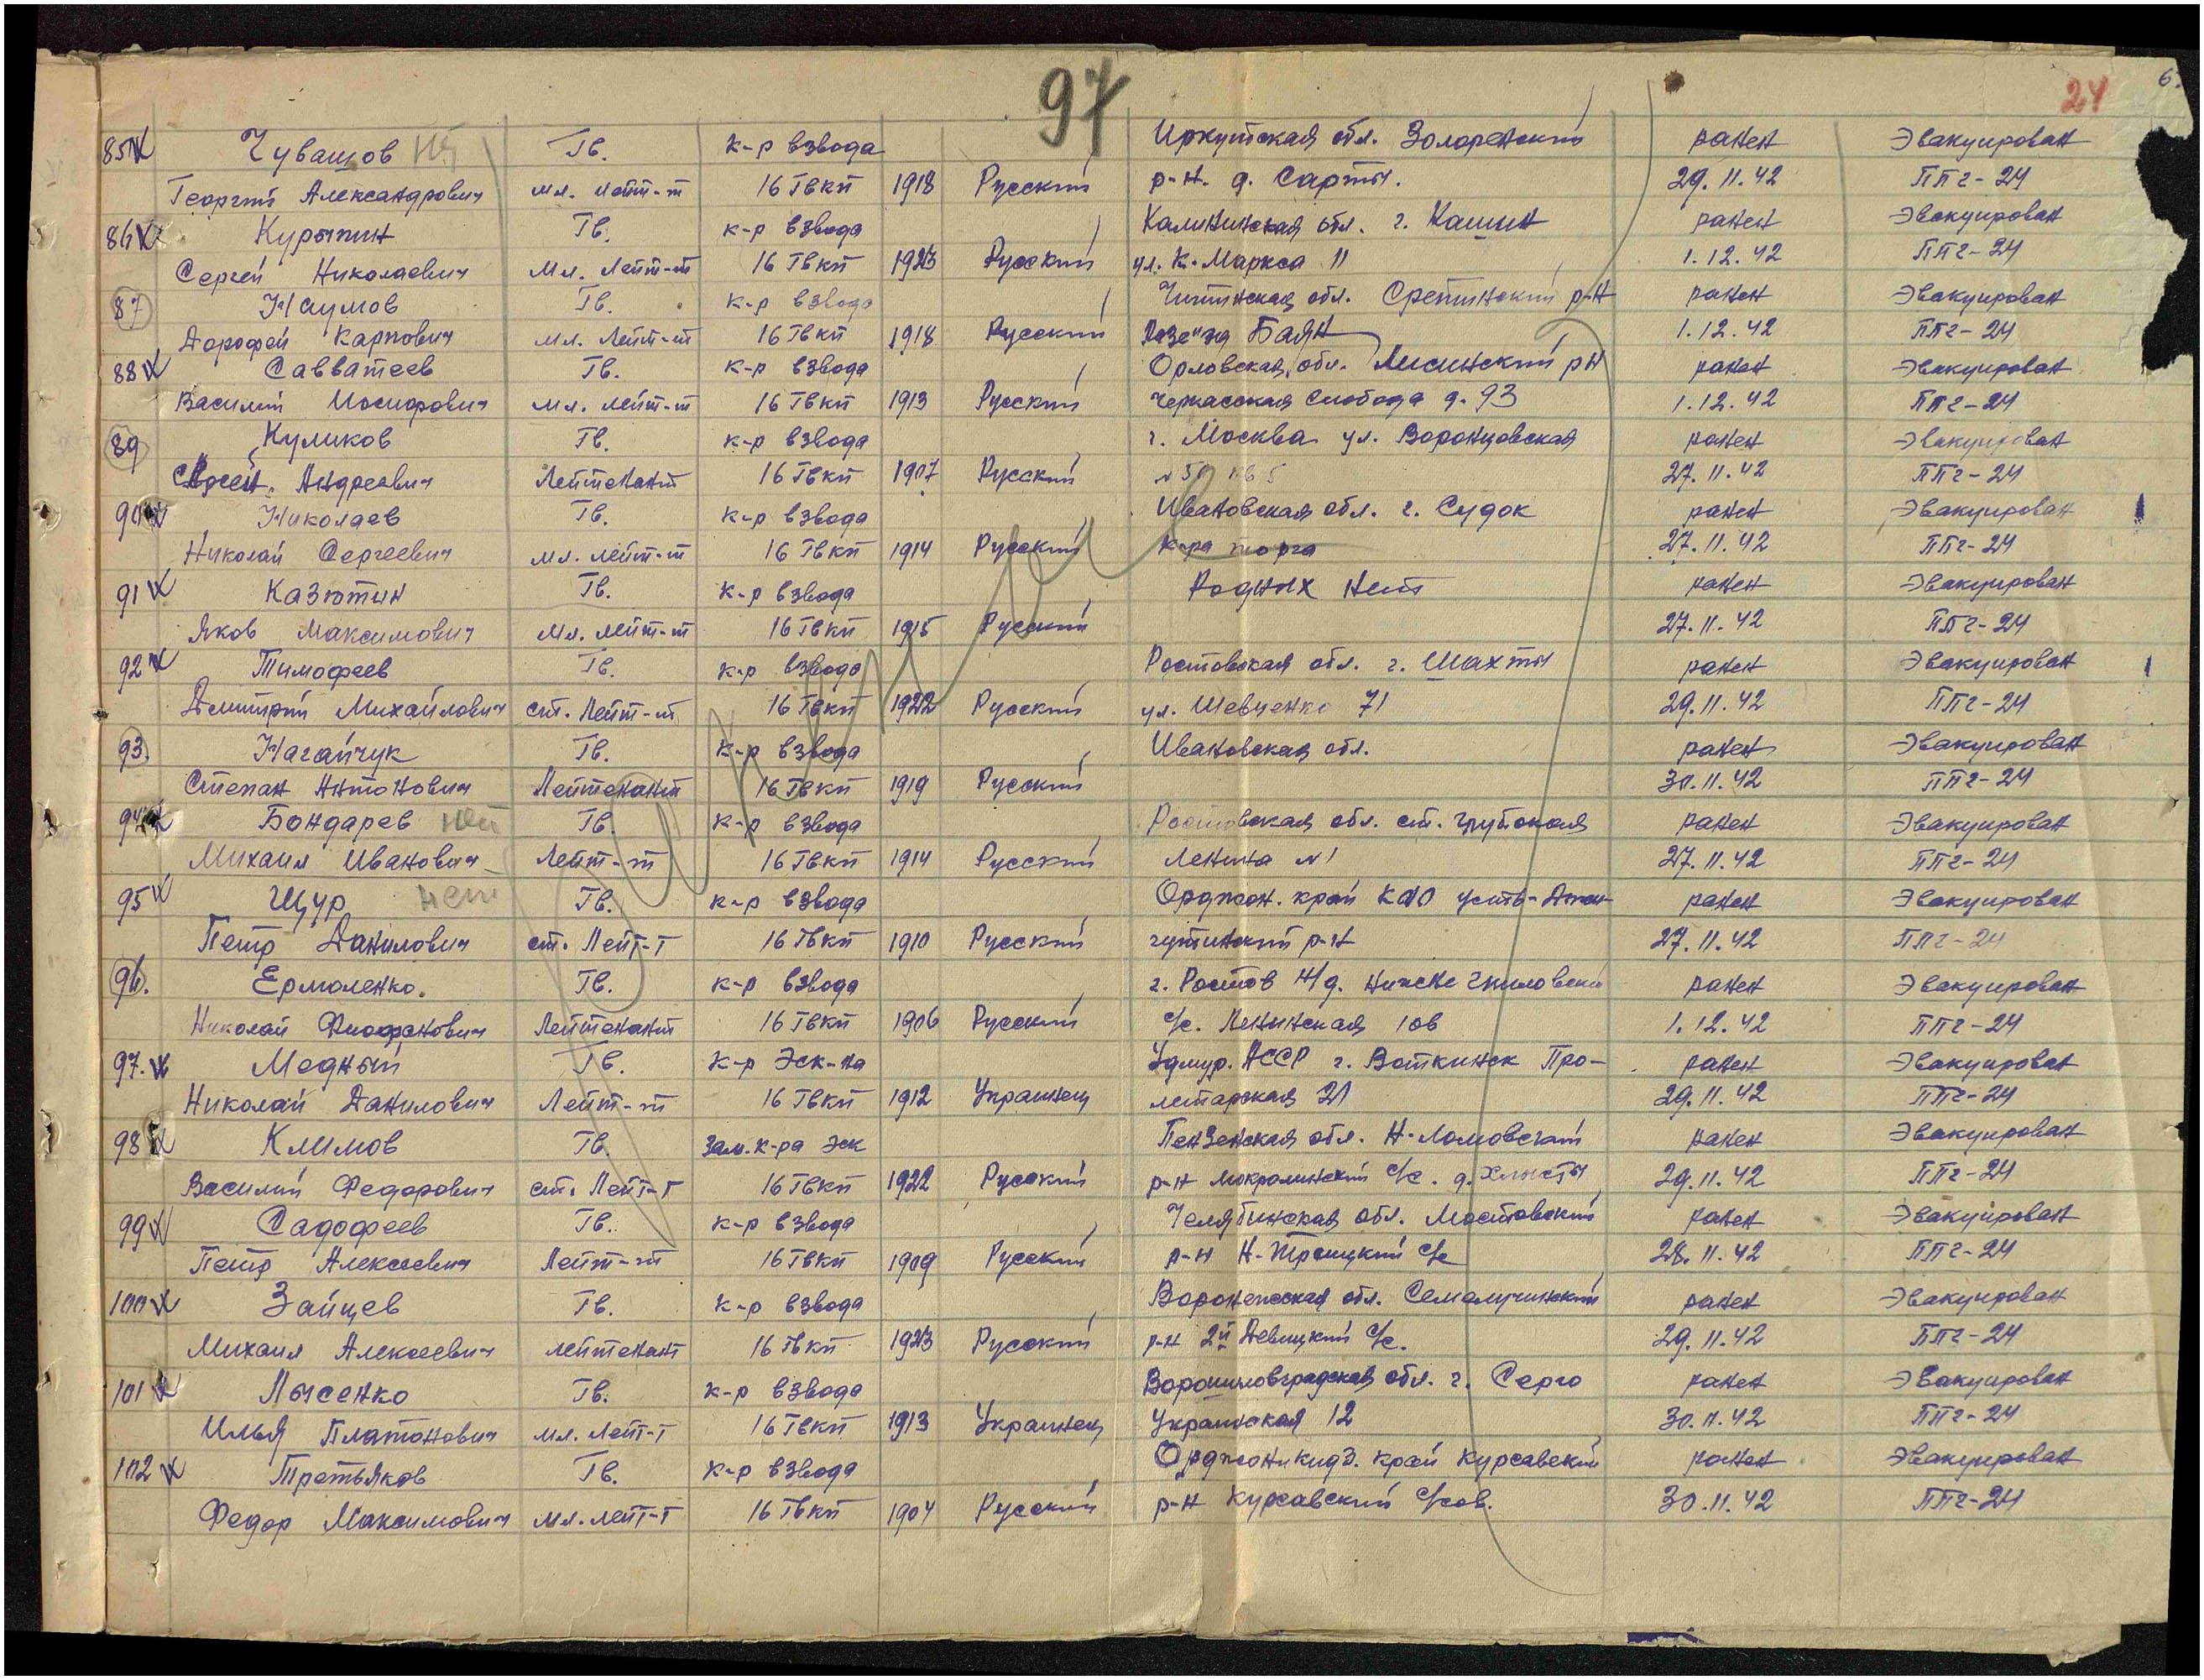 97
24
85 Чувашов Гв. к-р взвода Иркутская обл. Золоренский ранен Эвакуирован
Георгий Александрович мл. лейт-т 16 Гвкп 1918 Русский р-н. д. Сарты. 29.11.42 ППГ-24
86 Курыпин Гв. к-р взвода Калининская обл. г. Кашин ранен Эвакуирован
Сергей Николаевич Мл. Лейт-т 16 Гвкп 1923 Русский ул. К. Маркса 11 1.12.42 ППГ-24
87 Наумов Гв. к-р взвода Читинская обл. Сретинский р-н ранен Эвакуирован
Дорофей Карпович мл. Лейт-т 16 Гвкп 1918 Русский Разезд Баян 1.12.42 ППГ-24
88 Савватеев Гв. к-р взвода Орловская обл. р-н ранен Эвакуирован
Василий Иосифович мл. лейт-т 16 Гвкп 1913 Русский Черкасская слобода д. 93 1.12.42 ППГ-24
89 Куликов Гв. к-р взвода г. Москва ул. Воронцовская ранен Эвакуирован
Андреевич Лейтенант 16 Гвкп 1907 Русский 27.11.42 ППГ-24
90 Николаев Гв. к-р взвода Ивановская обл. г. Судок ранен Эвакуирован
Николай Сергеевич мл. лейт-т 16 Гвкп 1914 Русский к-ра торга 27.11.42 ППГ-24
91 Казютин Гв. к-р взвода Родных нет ранен Эвакуирован
Яков Максимович Мл. лейт-т 16 Гвкп 1915 Русский 27.11.42 ППГ-24
92 Тимофеев Гв. к-р взвода Ростовская обл. г. Шахты ранен Эвакуирован
Дмитрий Михайлович ст. Лейт-т 16 Гвкп 1922 Русский ул. Шевченко 71 29.11.42 ППГ-24
93. Нагайчук Гв. к-р взвода Ивановская обл. ранен Эвакуирован
Степан Антонович Лейтенант 16 Гвкп 1919 Русский 30.11.42 ППГ-24
94 Бондарев нет Гв. к-р взвода Ростовская обл. ст. ранен Эвакуирован
Михаил Иванович Лейт-т 16 Гвкп 1914 Русский Ленина №1 27.11.42 ППГ-24
95 Щур нет Гв. к-р взвода Орджон. край КАО усть-Джен- ранен Эвакуирован
Петр Данилович ст. Лейт-т 16 Гвкп 1910 Русский гутинский р-н 27.11.42 ППГ-24
96. Ермоленко. Гв. к-р взвода г. Ростов Н/д. Нижне Гниловски ранен Эвакуирован
Николай Феофанович Лейтенант 16 Гвкп 1906 Русский с/с. Ленинская 1.12.42 ППГ-24
97. Медный Гв. к-р Эск-на Удмур. АССР г. Воткинск Про- ранен Эвакуирован
Николай Данилович Лейт-т 16 Гвкп 1912 Украинец летарская 21 29.11.42 ППГ-24
98 Климов Гв. Зам. к-ра эск Пензенская обл. Н-Ломовский ранен Эвакуирован
Василий Федорович ст. Лейт-т 16 Гвкп 1922 Русский р-н с/с. д. Хлысты 29.11.42 ППГ-24
99 Садофеев Гв. к-р взвода Челябинская обл. Мостовский ранен Эвакуирован
Петр Алексеевич Лейт-т 16 Гвкп 1909 Русский р-н Н-Троицкий с/с 28.11.42 ППГ-24
100 Зайцев Гв. к-р взвода Воронежская обл. Семелучинский ранен Эвакуирован
Михаил Алексеевич лейтенант 16 Гвкп 1923 Русский р-н 2й Девицкий с/с. 29.11.42 ППГ-24
101 Лысенко Гв. к-р взвода Ворошиловградская обл. г. Серго ранен Эвакуирован
Илья Платонович мл. Лейт-т 16 Гвкп 1913 Украинец Украинская 12 30.11.42 ППГ-24
102 Третьяков Гв. к-р взвода Орджоникидз. край Курсавский ранен Эвакуирован
Федор Максимович мл. лейт-т 16 Гвкп 1904 Русский р-н Курсавский с/сов. 30.11.42 ППГ-24